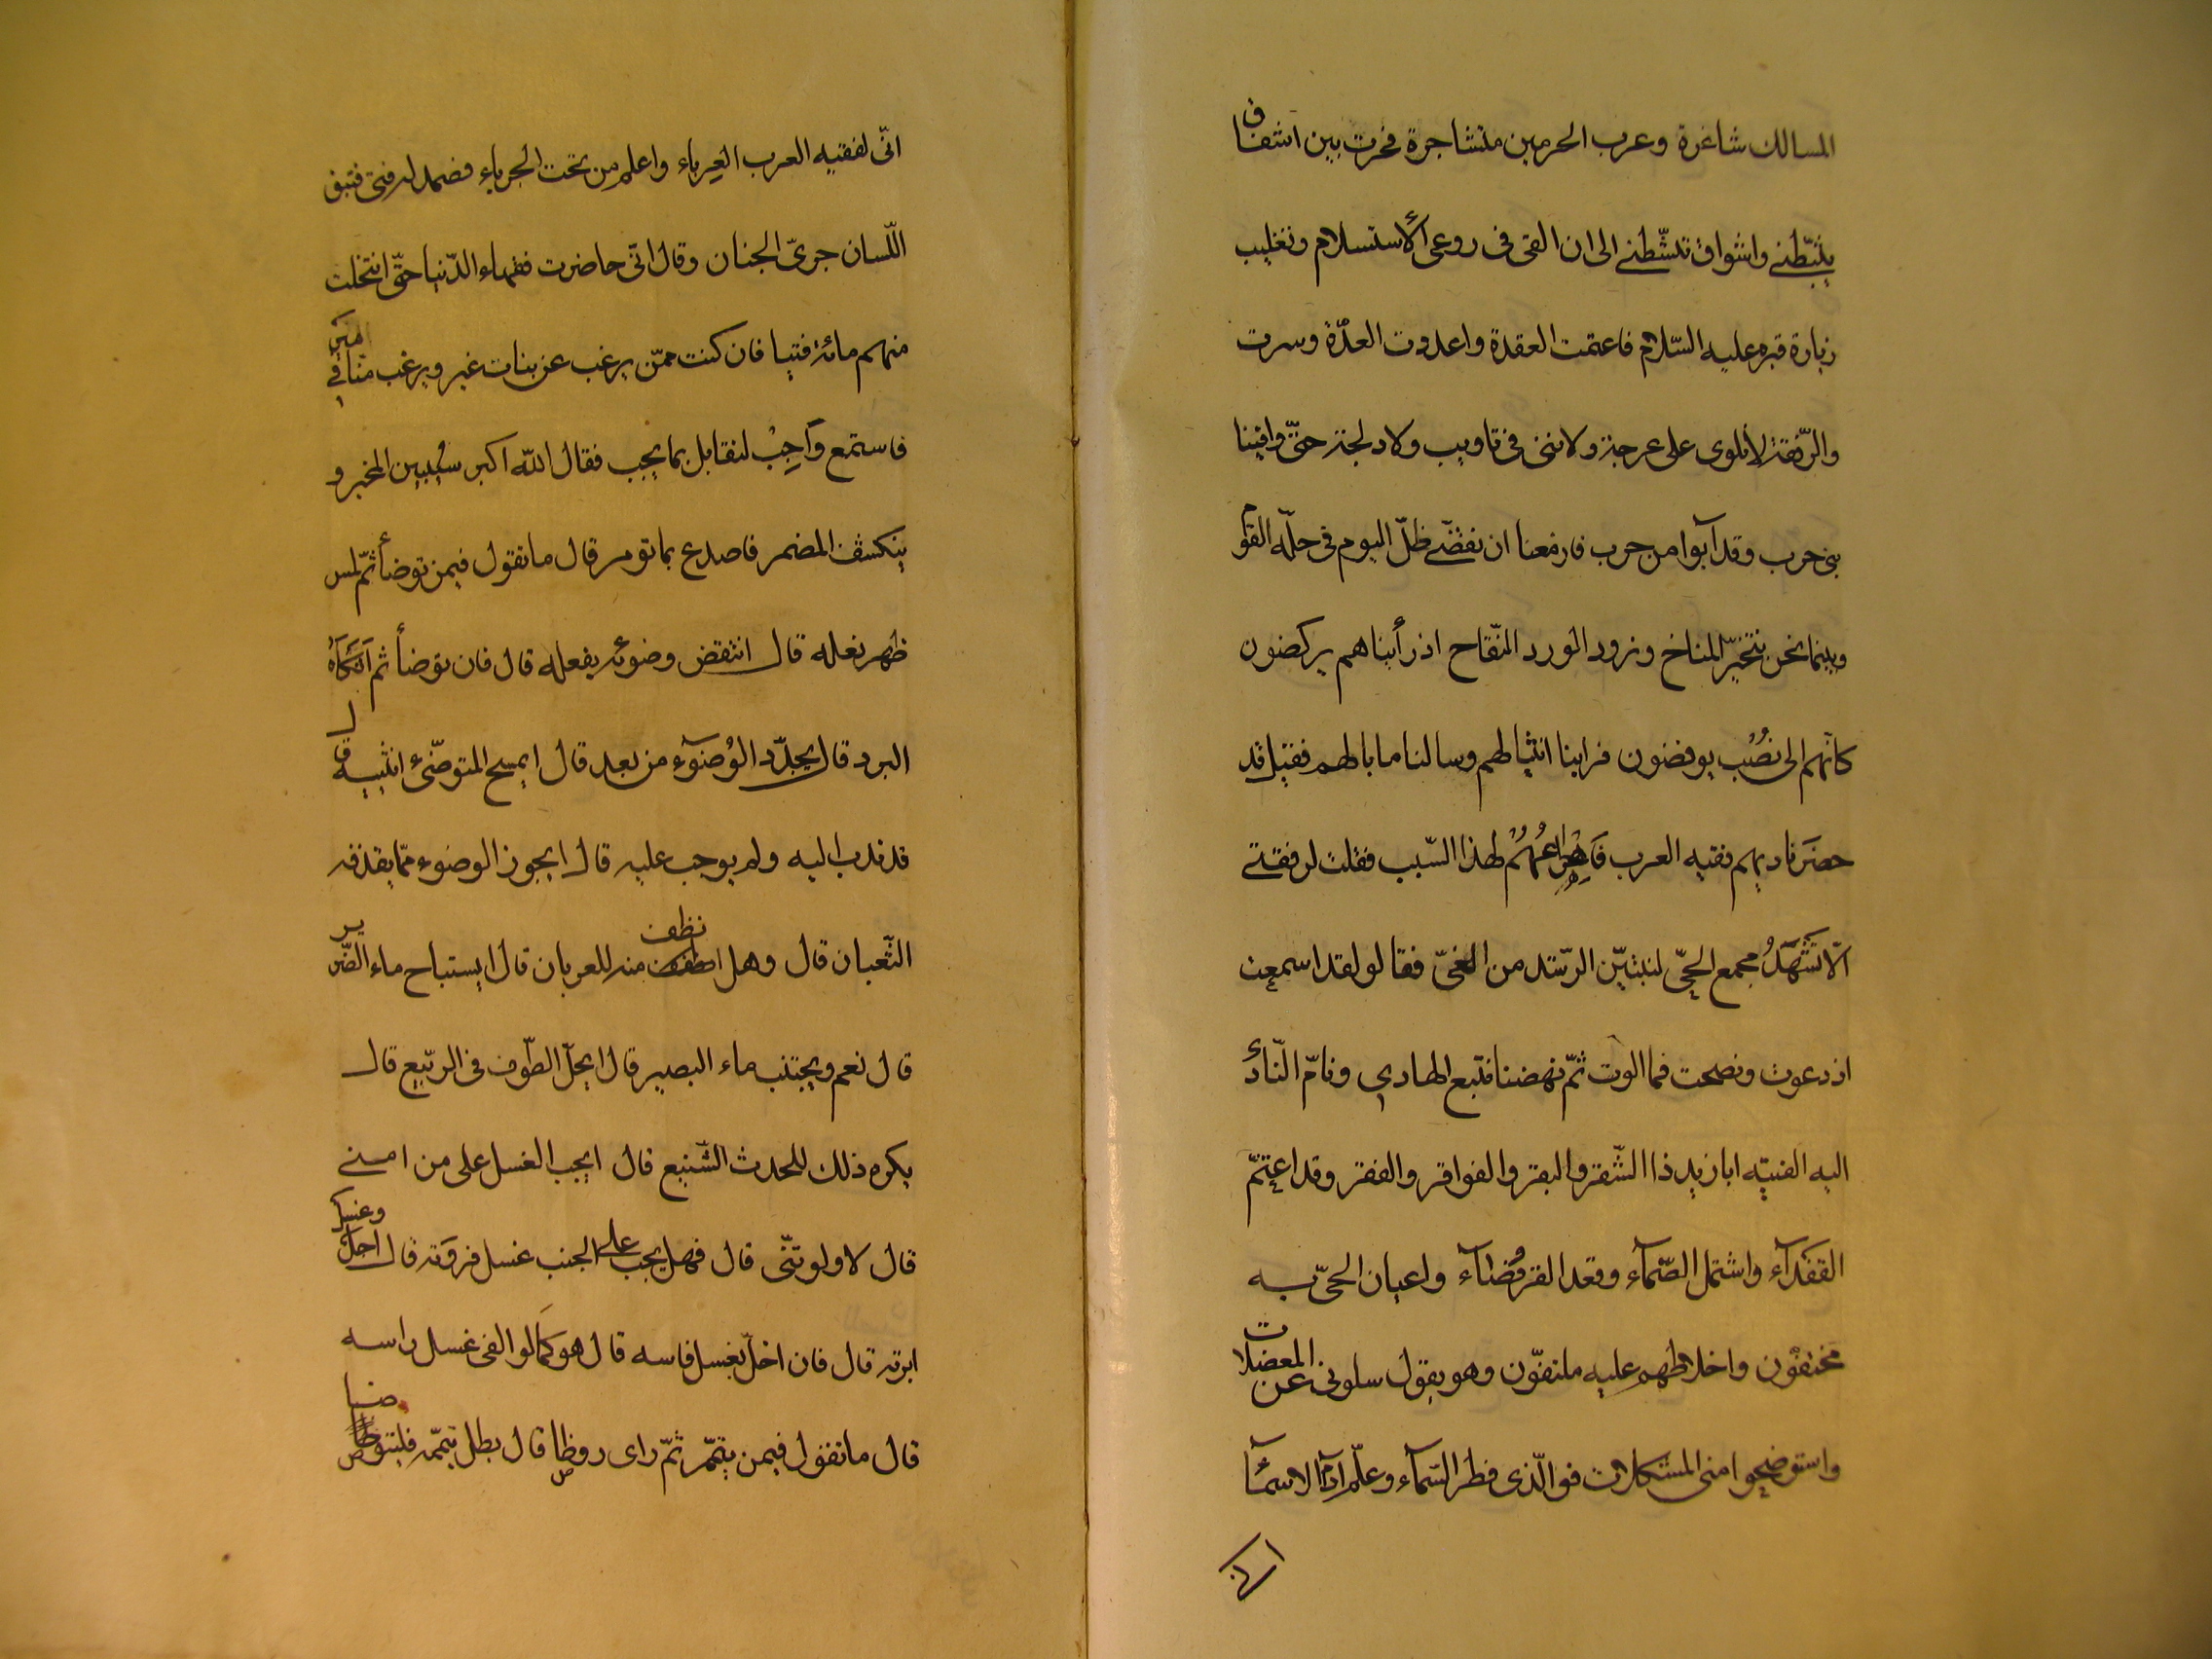 المسالك شاغرة وعرب الحرمين متشاجرة فخرت بين اشفاق
يثبّطني واشواق تنشّطني الى ان القى فى روعى الأستسلام وتغليب
زيارة قبره عليه السّلام فاعتمت العقدة واعدوت العدّة وسرت
والرّفقة لا نلوى على عرجة ولا ننى فى تاويب ولا دلجة حتّى وافينا
بنى حرب وقد آبوا من حرب فازمعنا ان نقضّى ظلّ اليوم فى حلّة القوم
وبينما نحن نتخيّر المناخ ونرود المورد النّقاح اذ رأيناهم يركضون
كانّهم الى نُصُب يوفضون فرابنا انثيالهم وسالنا ما بالهم فقيل قد
حضر ناديهم فقيه العرب فاهراعهم لهذا السّبب فقلت لرفقتى
الّا نشهدُ مجمع الحىّ لنتبيّن الرّشد من الغىّ فقالو لقد اسمعت
اذ دعوت ونصحت فما الوت ثمّ نهضنا نتّبع الهادي ونامّ النّادى
اليه الفنيّه ابا زيد ذا الشّقر والبقر والفواقر والفقر وقد اعتمّ
القفدآء واشتمل الصّمآء وقعد القرفصآء واعيان الحىّ به
محتفّون واخلاطهم عليه ملتفّون وهو يقول سلونى عن المعضلات
واستوضحوا منى المشكلات فو الّذى فطر السّمآء وعلّم آدآ الاسمآء
انّى لفقيه العرب العِرباء واعلم من تحت الجرباء فصمد له فتى فتيق
اللّسان جرىّ الجنان وقال انّى حاضرت فقهاء الدّنيا حتّى انتخلت
منهم مائة فتيا فان كنت ممّن يرغب عن بنات غير ويرغب منّا فى مير
فاستمع وَاَجِبْ لتقابل بما يجب فقال اللّه اكبر سيُبين المخبر و
ينكشف المضمر فاصدع بما تومر قال ما تقول فيمن توضأ ثمّ لمس
ظهر نعله قال انتقض وضوئه بفعله قال فان توضأ ثم اتكَأهُ
البرد قال يجدّد الوُضوٓء من بعد قال ايمسح المتوضّئ انثييه قال
قد ندب اليه ولم يوجب عليه قال ايجوز الوضوء ممّا يقذفه
الثّعبان قال وهل نظف منه للعربان قال ايستباح ماء الضّرير
قال نعم ويجتنب ماء البصير قال ايحلّ الطّوف فى الرّبيع قال
يكره ذلك للحدث الشّنيع قال ايجب الغسل على من امنى
قال لا ولو ثنّى قال فهل يجب على الجنب غسل فروته قال اجل وغسل
ابرته قال فان اخلّ بغسل فاسه قال هو كَمَا لو الغى غسل راسه
قال ما تقول فيمن يتمّم ثمّ راى روضا قال بطل تيمّمه فليتوضا